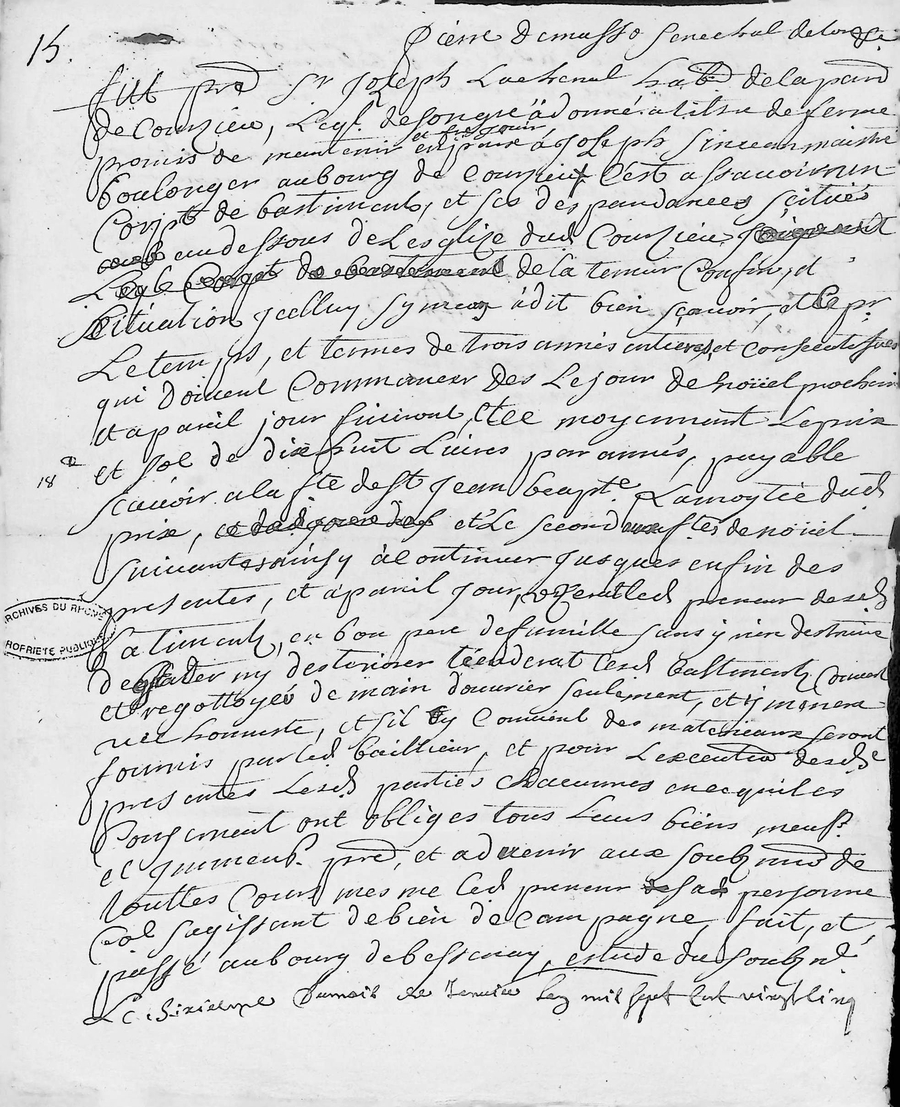 15.
Pierre Demasso senechal de
fut pnt Sr Joseph Lachenal habt de la parr
de Courzieu, Leql. de son gré à donné a titre de ferme
promis de maintenir et fre jouir à Joseph Simean maistre
boulonger au bourg de Courzieu C'est assavoir un
Corps de bastiment, et ses despandances scitués
au dessous de Lesglize dud Courzieu,
de la teneur Confin, et
scituation jcelluy Symean à dit bien sçavoir, et Ce pr
Le temps, et termes de trois annés entieres, et Consecutifves
qui doivent Commancer des Le jour de noüel prochain
et a pareil jour finiront, Et Ce moyennant Le prix
18 ₶
et sol de dix huit Livres par annés, payable
scavoir a la fte de St Jean bapte. La moytié dud
prix, et Le second aux ftes de noüel
suivantes ainsy à continuer jusques en fin des
presentes, et à pareil jour, led preneur desd
ARCHIVES DU RHONE
PROPRIÉTÉ PUBLIQUE
batiments, en bon pere de famille sans y rien destruire
degrader ny desteriorer Lesd bastiments Couvert
et regottoyés de main d'ouvrier seulement, et y menera
vie honneste, et s'il y Convient des materieaux seront
fournis par led bailleur, et pour L'execution desd
presentes Lesd parties chacunnes en ce qui les
Conscernent ont obligés tous Leurs biens meubs.
et jmmeubs. pnts, et advenir aux soubzmons de
touttes Cours mesme led preneur sad personne
Col sagissant de bien de Campagne, fait, et
passé au bourg de bessenay, estude du soubzné
Le sixieme Du mois de Janvier mil sept Cent vingt Cinq